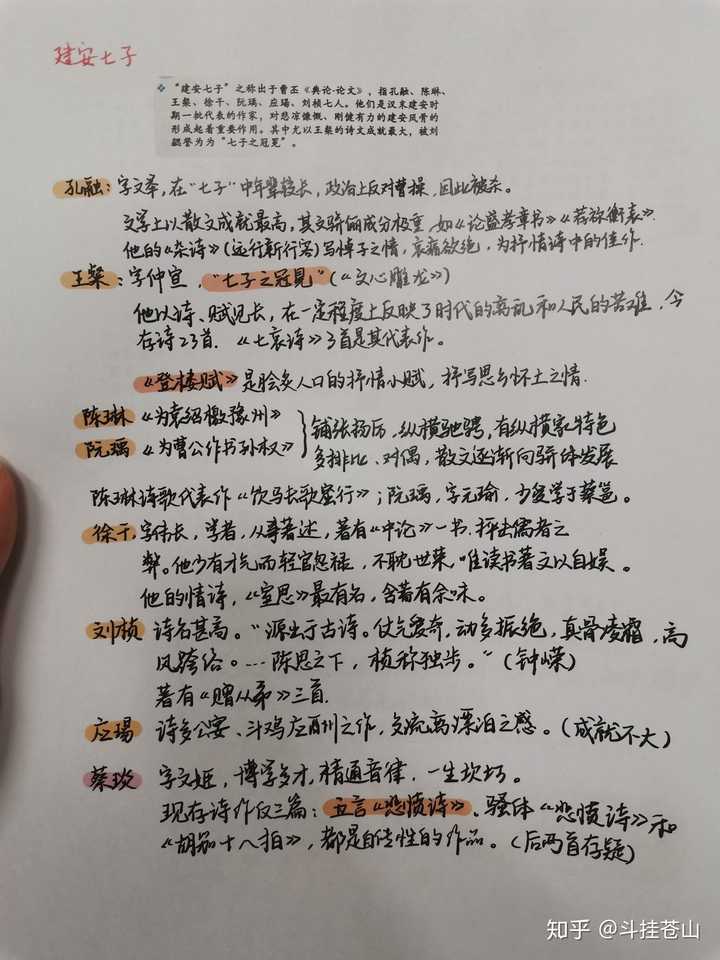 建安七子
❖ "建安七子"之称出于曹丕《典论·论文》，指孔融、陈琳、
王粲、徐干、阮瑀、应玚、刘桢七人。他们是汉末建安时
期一批代表的作家，对悲凉慷慨、刚健有力的建安风骨的
形成起着重要作用。其中尤以王粲的诗文成就最大，被刘
勰誉为为"七子之冠冕"。
孔融：字文举，在"七子"中年辈较长，政治上反对曹操，因此被杀。
文学上以散文成就最高，其文骈俪成分极重，如《论盛孝章书》《荐祢衡表》.
他的《杂诗》(远行新行客)写悼子之情，哀痛欲绝，为抒情诗中的佳作.
王粲：字仲宣，"七子之冠冕"(《文心雕龙》)
他以诗、赋见长，在一定程度上反映了时代的离乱和人民的苦难，今
存诗23首.《七哀诗》3首是其代表作。
《登楼赋》是脍炙人口的抒情小赋，抒写思乡怀土之情.
陈琳《为袁绍檄豫州》
阮瑀《为曹公作书孙权》
铺张扬厉，纵横驰骋，有纵横家特色
多排比、对偶，散文逐渐向骈体发展
陈琳诗歌代表作《饮马长歌窟行》；阮瑀，字元瑜，少受学于蔡邕。
徐干，字伟长，学者，从事著述，著有《中论》一书.抨击儒者之
弊。他少有才气而轻官忽禄，不耽世荣，唯读书著文以自娱。
他的情诗，《室思》最有名，含蓄有余味。
刘桢 诗名甚高。"源出于古诗。仗气爱奇，动多振绝，真骨凌霜，高
风跨俗。…陈思之下，桢称独步。"(钟嵘)
著有《赠从弟》三首.
应玚 诗多公宴、斗鸡应酬之作，多流离漂泊之感。(成就不大)
蔡琰 字文姬，博学多才，精通音律，一生坎坷。
现存诗作仅三篇：五言《悲愤诗》、骚体《悲愤诗》和
《胡笳十八拍》，都是自传性的作品。(后两首存疑)
知乎 @斗挂苍山